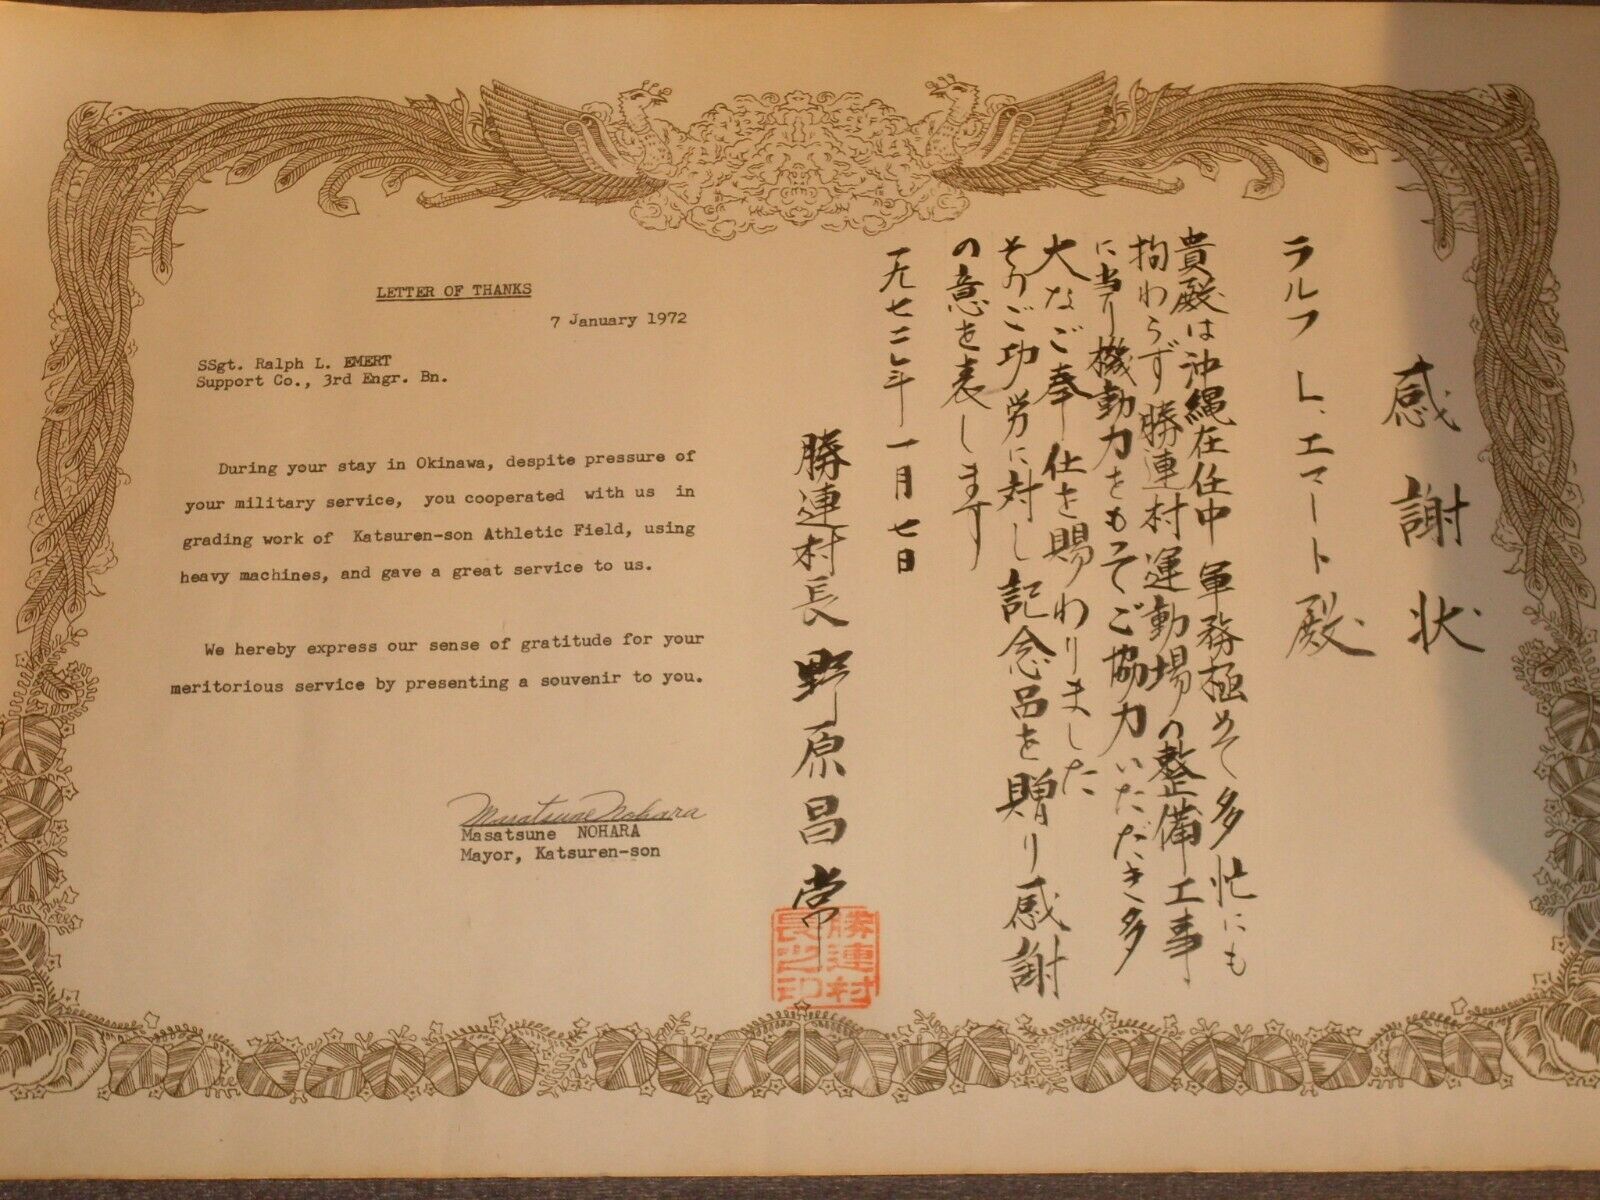 LETTER OF THANKS
7 January 1972
SSgt. Ralph L. EMERT
Support Co., 3rd Engr. Bn.
During your stay in Okinawa, despite pressure of
your military service, you cooperated with us in
grading work of Katsuren-son Athletic Field, using
heavy machines, and gave a great service to us.
We hereby express our sense of gratitude for your
meritorious service by presenting a souvenir to you.
Masatsune Nohara
Masatsune NOHARA
Mayor, Katsuren-son
感謝状
ラルフ L、エマート殿
貴殿は沖縄在任中軍務極めて多忙にも
拘わらず勝連村運動場の整備工事
に当り機動力をもってご協力いただき多
大なご奉仕を賜わりました
そのご功労に対し記念品を贈り感謝
の意を表します
一九七二年一月七日
勝連村長 野原昌常
勝連村
長之印